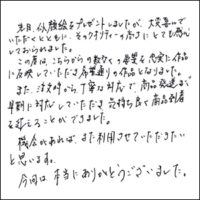 先日、似顔絵をプレゼントしましたが、大変喜んで
いただくとともに、そのクオリティの高さにとても感心
しておられました。
この度は、こちらからの数多くの要望を忠実に作品
に反映していただき希望通りの作品となりました。
また、注文時から丁寧な対応で、商品発送まで
早期に対応していただき、気持ち良く商品到着
を迎えることができました。
機会があれば、また利用させていただきたい
と思います。
今回は、本当にありがとうございました。